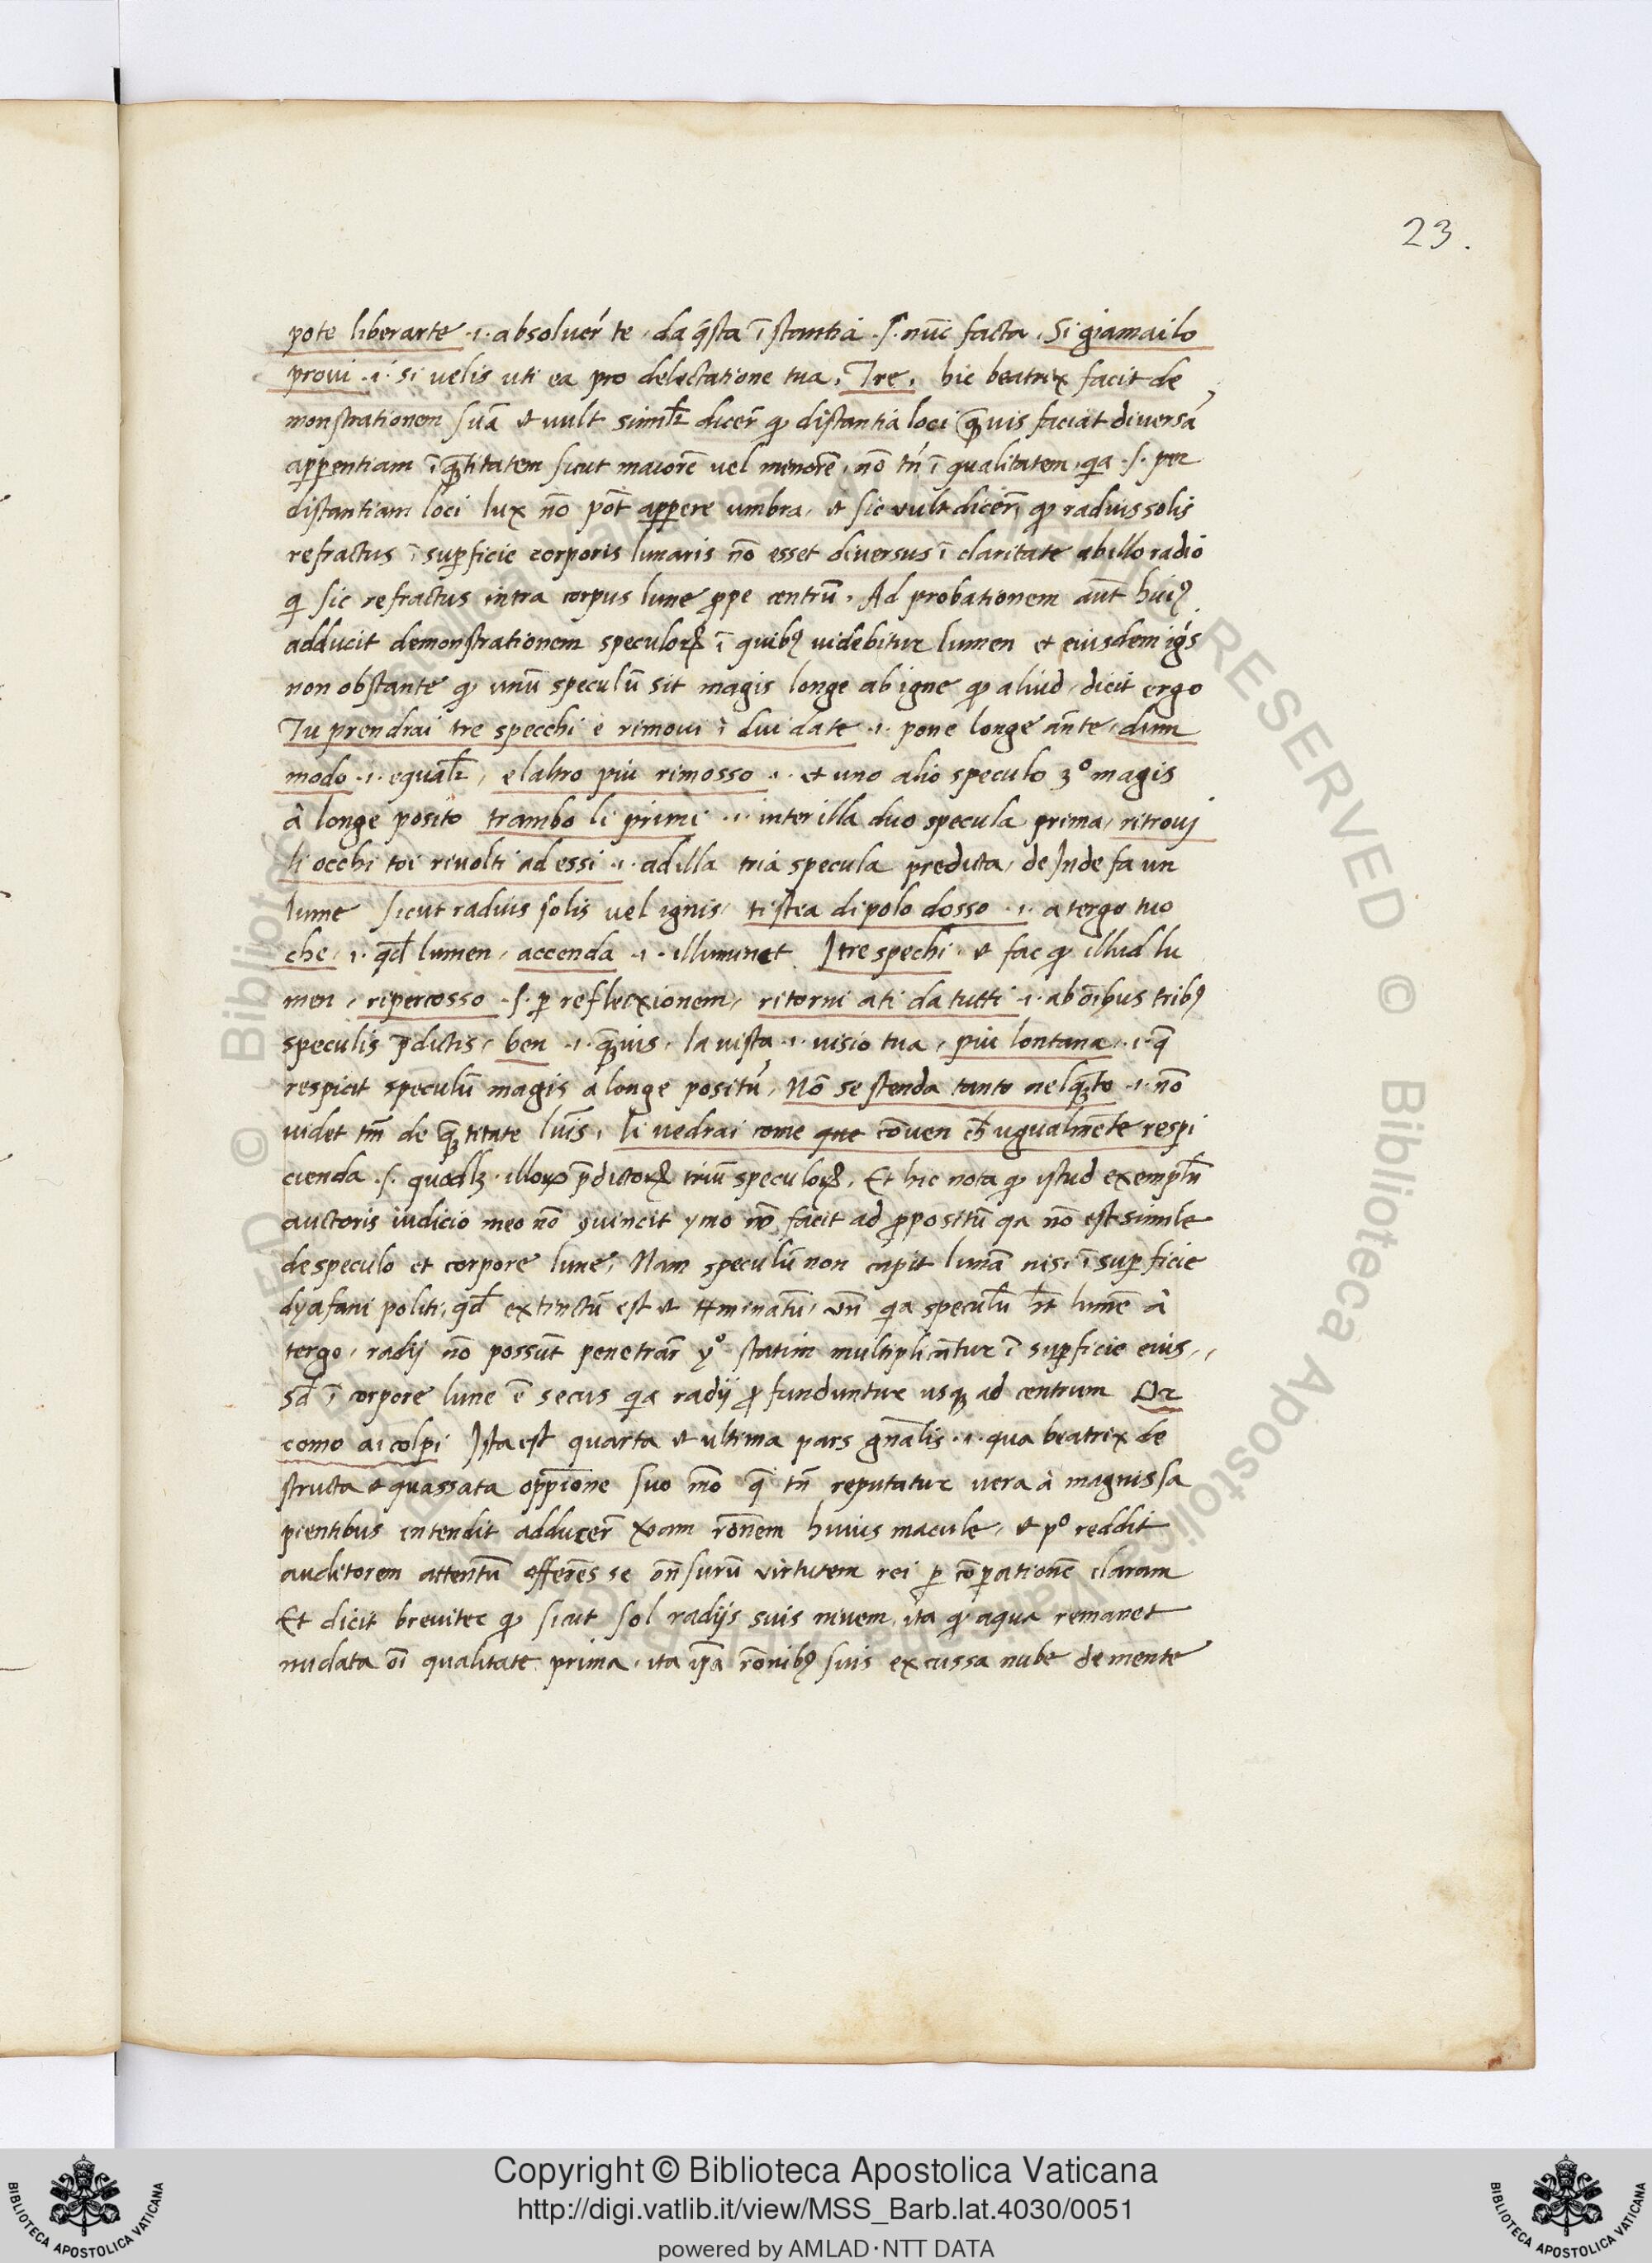 23.
pote liberarte .i. absoluer̄ te, da q̄sta ī stantia .s. nūc facta, Si giamai lo
proui .i. si uelis uti ea pro delectatione tua, Tre, hic beatrix facit de
monstrationem suā et uult similr̄ dicer̄ ꝙ distantia loci q̄uis faciat diuersā
apparentiam ī q̄titatem sicut maiorē uel minorē, nō tn̄ ī qualitatem, qa .s. per
distantiam loci lux nō pōt apparere umbra, et sic uult dicer̄ ꝙ radius solis
refractus ī suꝑficie corporis lunaris nō esset diuersus ī claritate ab illo radio
qi sic refractus intra corpus lune ꝓpe centrū, Ad probationem aūt huiꝰ
adducit demonstrationem speculoꝝ ī quibꝰ uidebitur lumen et eiusdem igīs
non obstante ꝙ unū speculū sit magis longe ab igne ꝙ aliud, dicit ergo
Tu prendrai tre specchi e rimoui i dui da te .i. pone longe ante, dun
modo .i. equalr̄, e laltro piu rimosso .i. et uno alio speculo 3º magis
à longe posito trambo li primi .i. inter illa duo specula prima, ritrouj
li occhi toi riuolti ad essi .i. ad illa tria specula predicta, de Inde fa un
lume sicut radius solis uel ignis, ti stea di polo dosso .i. a tergo tuo
che, .i. qd̄ lumen, accenda .i. illuminet I tre spechi, et fac ꝙ illud lu
men, ripercosso .s. ꝑ reflecxionem, ritorni a ti da tutti .i. ab oībus tribꝰ
speculis p̄dictis, ben .i. q̄uis, la uista .i. uisio tua, piu lontana, .i. q̄
respicit speculū magis a longe positū, Nō se stenda tanto nel q̄to .i. nō
uidet tm̄ de q̄titate luīs, li uedrai come que cōuen ch̄ ugualmēte respi
cienda .s. quodlꝫ illoꝝ p̄dictoꝝ triū speculoꝝ, Et hic nota ꝙ ystud exemplū
auctoris iudicio meo nō ꝯuincit ymo nō facit ad ꝓpositū qa nō est simile
de speculo et corpore lune, Nam speculū non capit lumē nisi ī suꝑficie
dyafani politi, qd̄ extinctū est et tminatū, un̄ qa speculū hēt lumē à
tergo, radij nō possūt penetrar̄ yº statim multiplicātur ī suꝑficie eius,,
sd̄ ī corpore lune ē secus qa radij ꝓfunduntur usqꝫ ad centrum Or
como ai colpi Ista est quarta et ultima pars gn̄alis .i. qua beatrix de
structa et quassata opp̄ione suo mō q̄ tn̄ reputatur uera à magnis sa
pientibus intendit adducer̄ ueram rōnem huius macule, et pº reddit
auditorem attentū offerēs se on̄surū uirtutem rei ꝑ cōꝑationē claram
Et dicit breuiter ꝙ sicut sol radijs suis niuem, ita ꝙ aqua remanet
nudata oī qualitate prima, ita ip̄a rōnibꝰ suis excussa nube de mente
Copyright © Biblioteca Apostolica Vaticana
http://digi.vatlib.it/view/MSS_Barb.lat.4030/0051
powered by AMLAD·NTT DATA
BIBLIOTECA APOSTOLICA VATICANA
BIBLIOTECA APOSTOLICA VATICANA